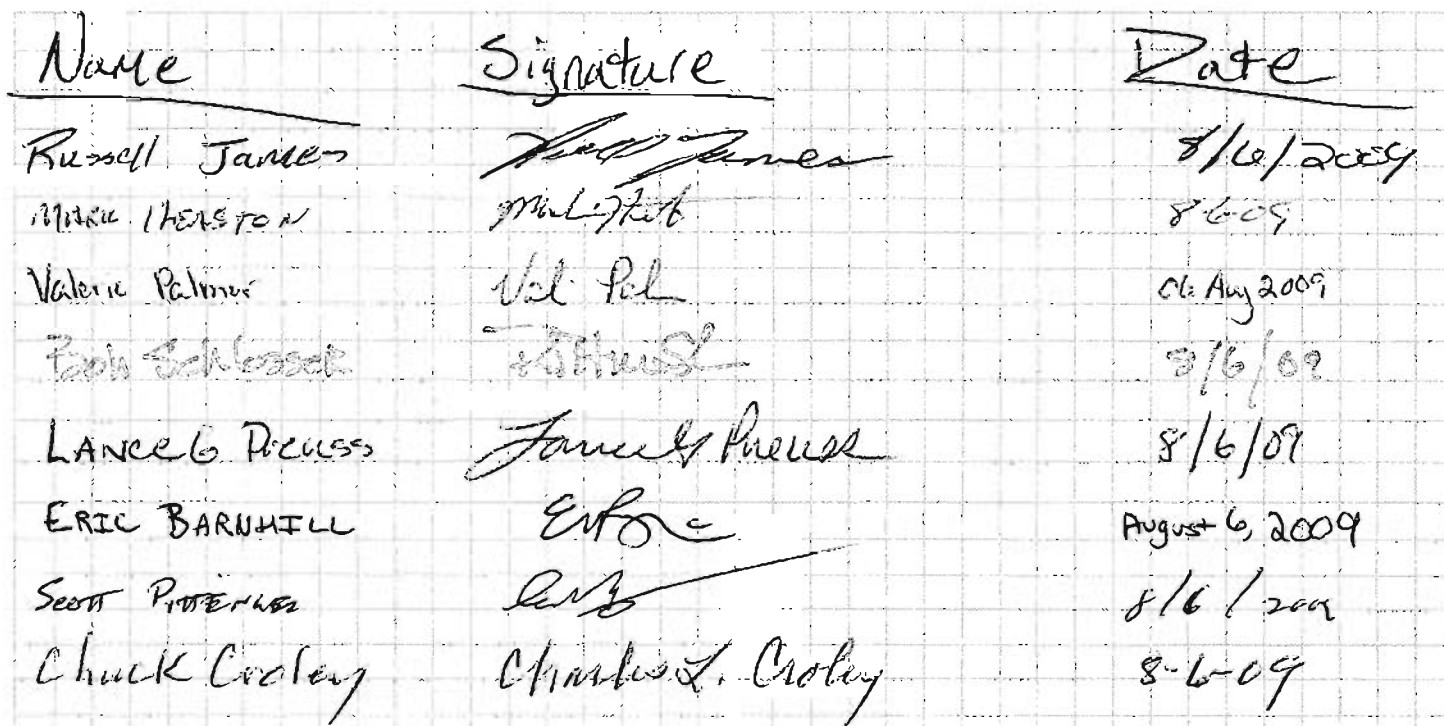 Name Signature Date
Russell James Russell James 8/6/2009
MARK 8-6-09
Valerie Palmer Val Pal 06 Aug 2009
Bob Schlosser 8/6/09
LANCE G PREUSS Lance G Preuss 8/6/09
ERIC BARNHILL August 6, 2009
SCOTT PITTENGER 8/6/2009
Chuck Croley Charles L. Croley 8-6-09